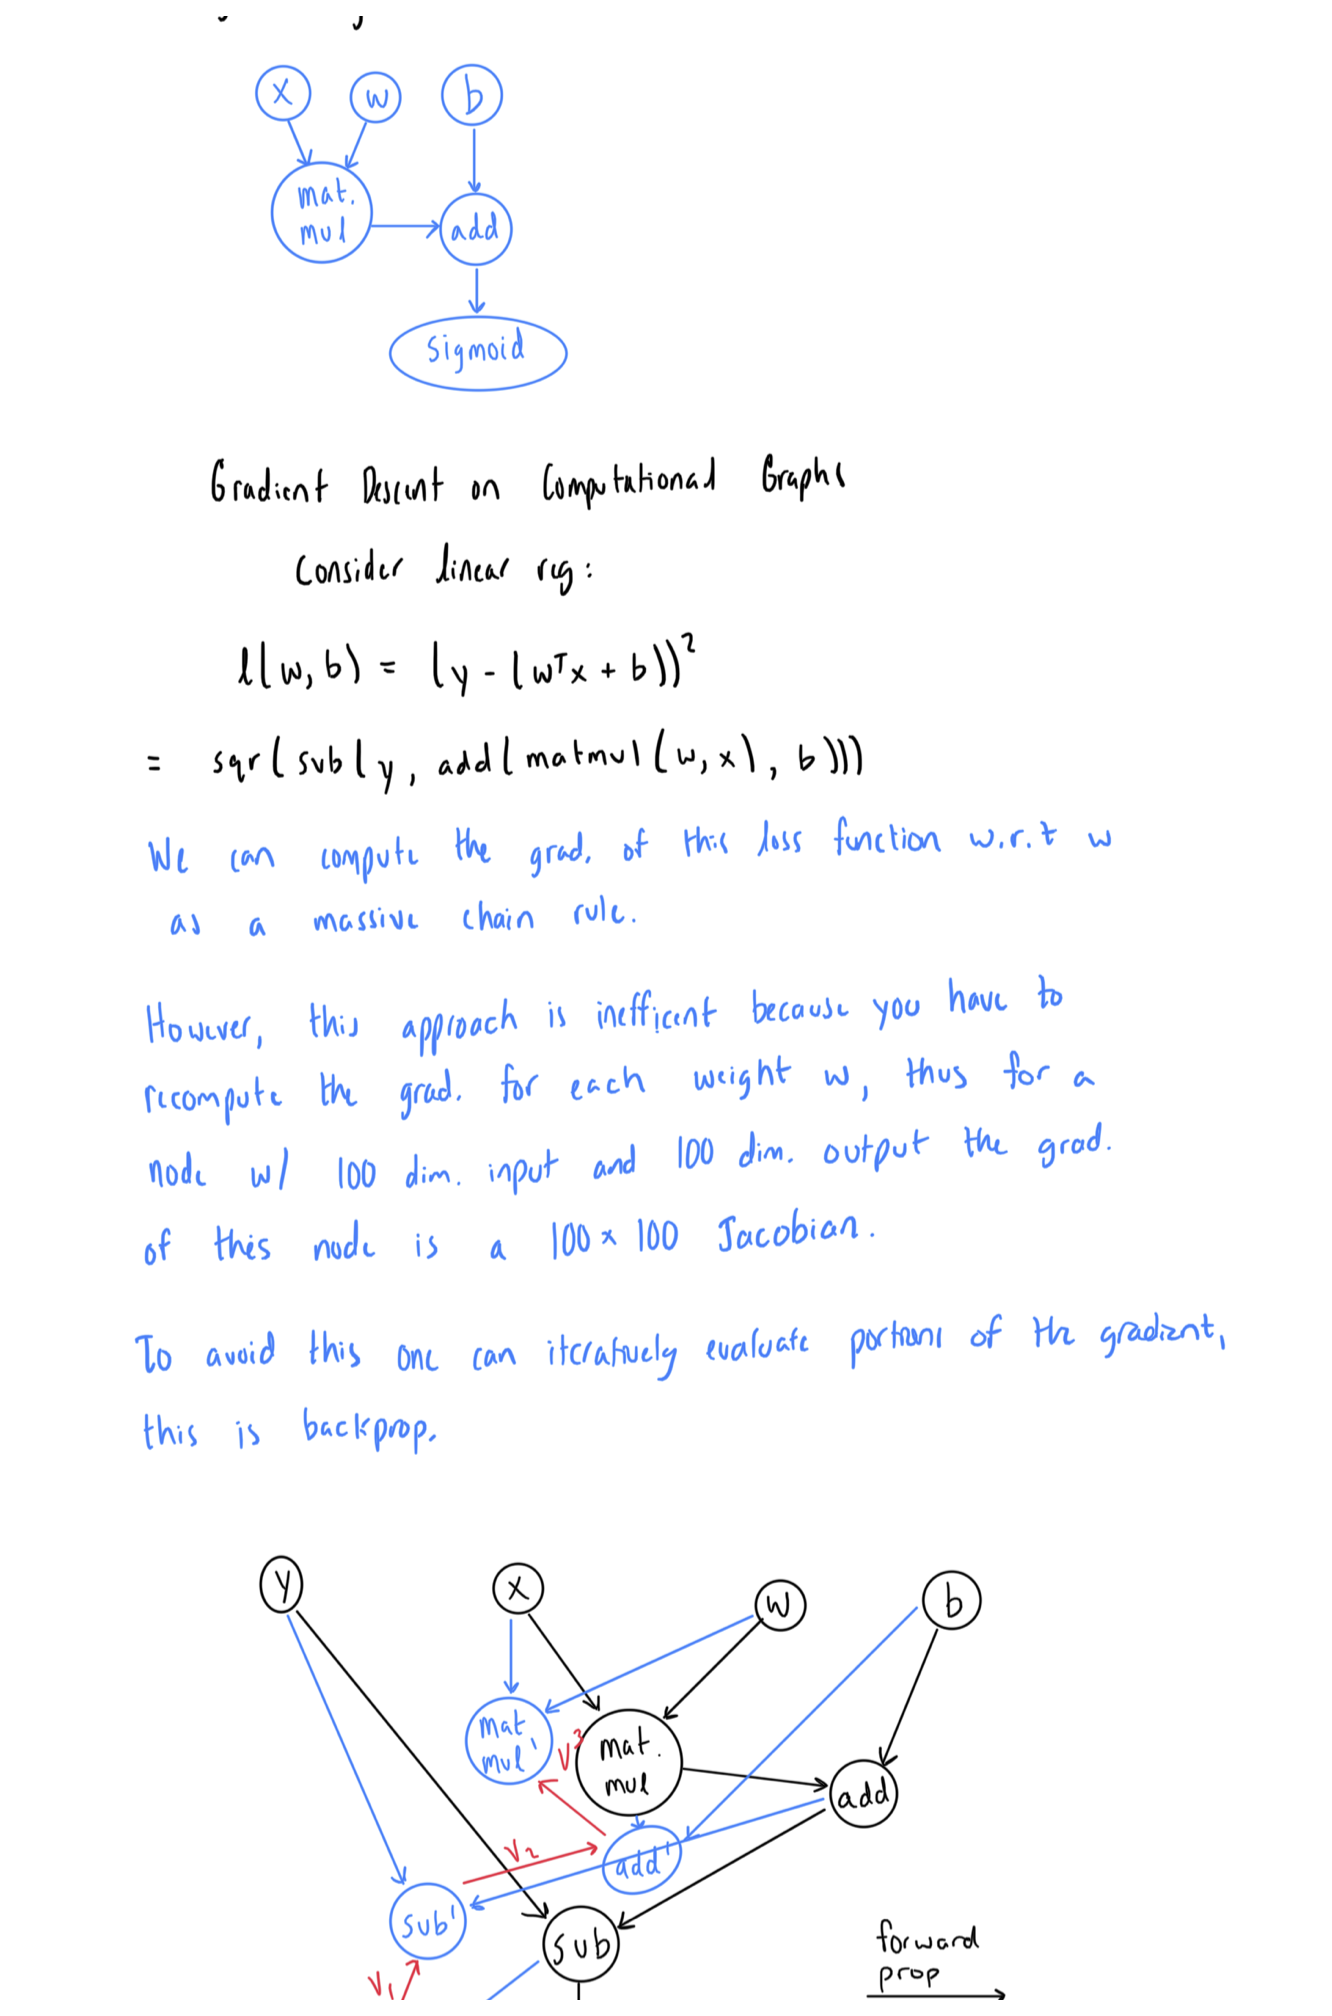 x w b
mat.
mul
add
Sigmoid
Gradient Descent on Computational Graphs
Consider linear reg:
l(w,b) = (y - (wᵀx + b))²
= sqr(sub(y, add(matmul(w,x), b)))
We can compute the grad. of this loss function w.r.t w
as a massive chain rule.
However, this approach is inefficent because you have to
recompute the grad. for each weight w, thus for a
node w/ 100 dim. input and 100 dim. output the grad.
of this node is a 100 x 100 Jacobian.
To avoid this one can iteratively evaluate portions of the gradient,
this is backprop.
y x w b
mat
mul'
V³
mat.
mul
add
V2
add'
sub'
sub
V1
forward
prop